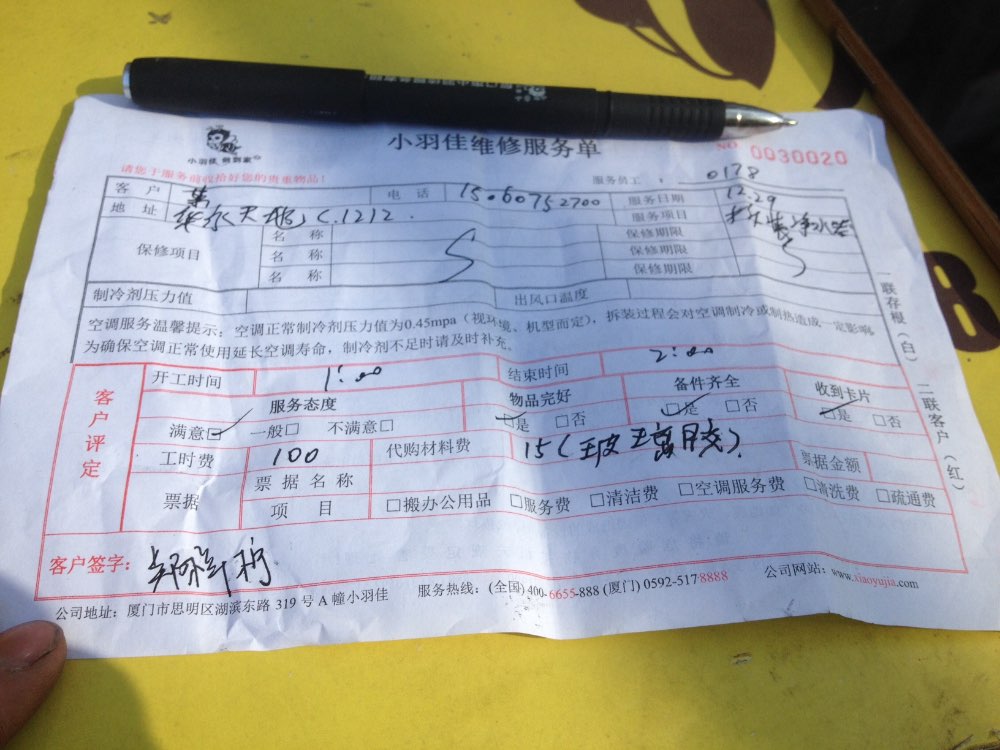 小羽佳维修服务单
NO 0030020
小羽佳 到家
请您于服务前收拾好您的贵重物品!
服务员工: 0178
客户 电话 15060752700 服务日期 12.29
地址 C.1212. 服务项目
保修项目 名称 保修期限
名称 保修期限
名称 保修期限
制冷剂压力值 出风口温度
空调服务温馨提示:空调正常制冷剂压力值为0.45mpa(视环境、机型而定),拆装过程会对空调制冷或制热造成一定影响
为确保空调正常使用延长空调寿命,制冷剂不足时请及时补充。
一联存根(白) 二联客户(红)
客户评定
开工时间 1:00 结束时间 2:00
服务态度 物品完好 备件齐全 收到卡片
满意☑ 一般□ 不满意□ ☑是 □否 ☑是 □否 ☑是 □否
工时费 100 代购材料费 15
票据 票据名称 票据金额
项目 □搬办公用品 □服务费 □清洁费 □空调服务费 □清洗费 □疏通费
客户签字:
公司地址:厦门市思明区湖滨东路 319 号 A 幢小羽佳 服务热线:(全国) 400-6655-888 (厦门) 0592-517 8888 公司网站:www.xiaoyujia.com